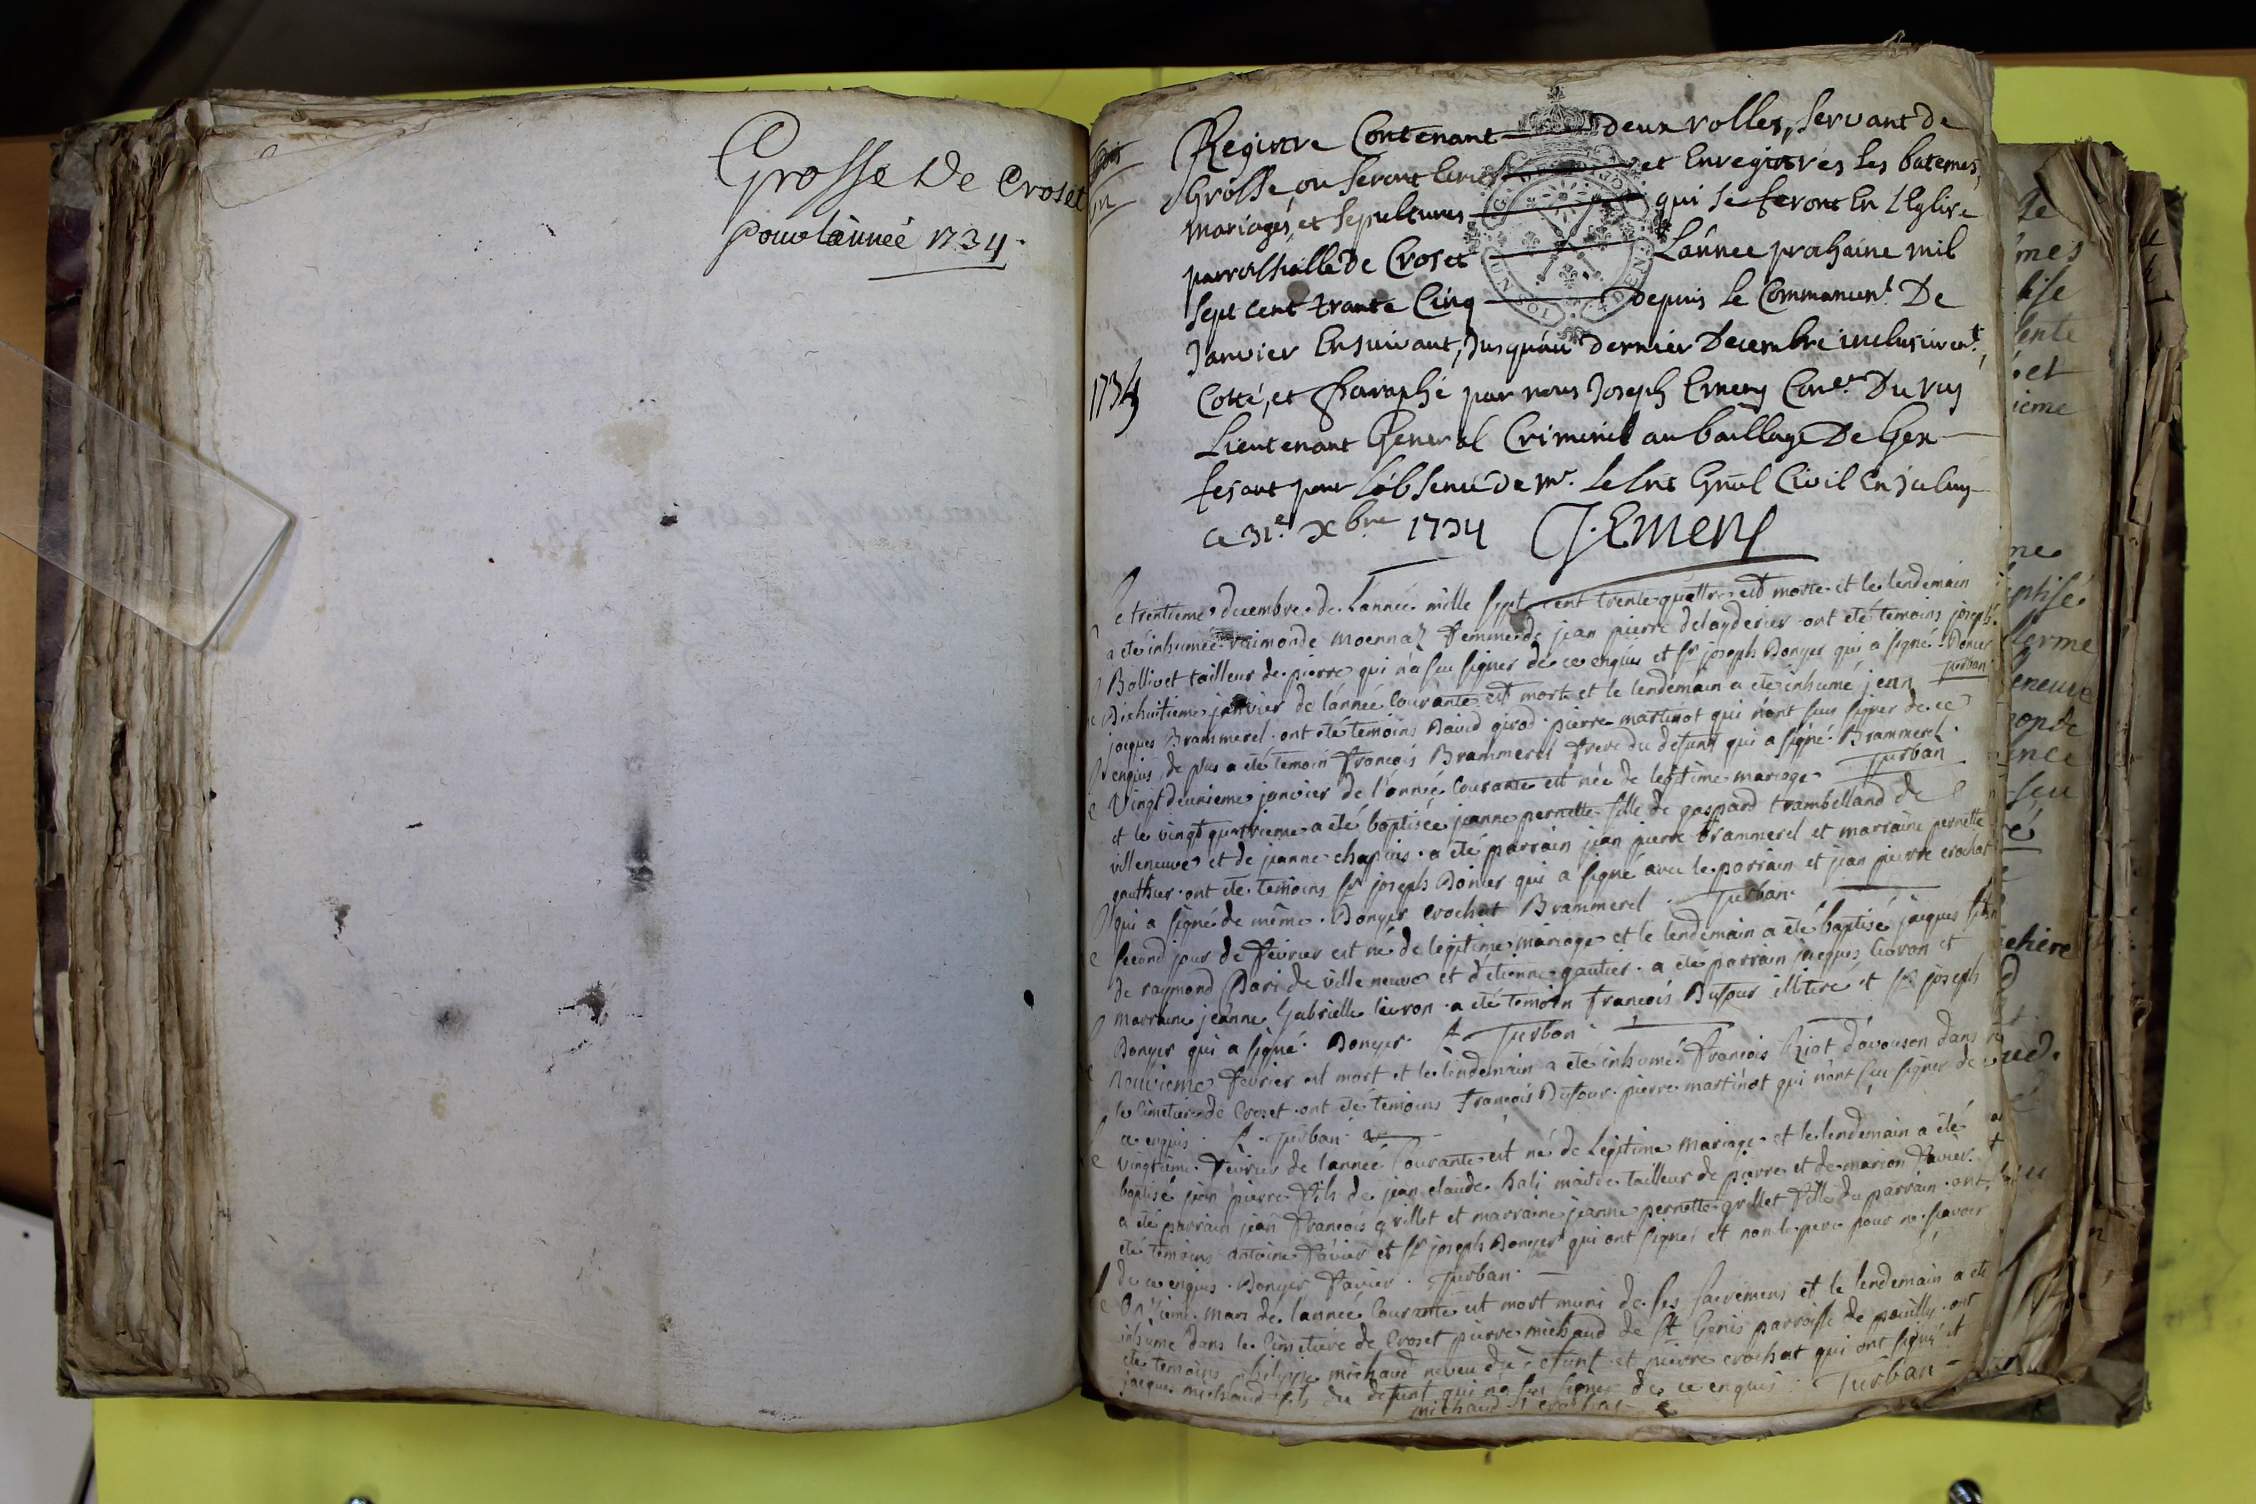 Grosse De Croset
pour lánneé 1734.
Registre Contenant deux rolles, servant de
Grosse ou seront Ecries et Enregistrés les batemes,
mariages, et sepultures qui se feront En L'Eglise
parroissialle de Croset Lánnee prochaine mil
sept cent trante Cinq depuis le Commancent De
Janvier Ensuivant, Jusquáu dernier Decembre inclusivemt.
1734
Cotté, et Paraphé par nous Joseph Emery Coner. Du roy
Lieutenant General Criminel au bailliage De Gex
fesant pour L'absence de mr. Le Lnt Gnal Civil En
ce 31e. Xbre 1734 J. Emery
e trentieme decembre de L'année mille sept cent trente quattre est morte et le lendemain
a eté inhumée raimonde moennaz femme de jean pierre delayderier ont eté temoins joseph
Bollivet tailleur de pierre qui n'a seu signer de ce enquis et sr joseph Donyer qui a signé. Donier
Turban
Dixhuitieme janvier de l'année Courante est mort et le lendemain a eté inhumé jean
jacques Brammerel. ont eté temoins David girod. pierre martinot qui n'ont seu signer de ce
enquis, de plus a eté temoin françois Brammerel frere du defunt qui a signé. Brammerel.
Turban
e Vingt deuxieme janvier de l'année Courante est née de legitime mariage
et le vingt quatrieme a eté baptisée jeanne pernette fille de gaspard trambelland de
villeneuve et de jeanne chapuis. a eté parrain jean pierre Brammerel et marraine pernette
gauthier. ont eté temoins sr joseph Donier qui a signé avec le parrain et jean pierre crochat
qui a signé de même. Donyer crochat Brammerel. Turban.
e second jour de fevrier est né de legitime mariage et le lendemain a eté baptisé jacques fils
de raymond Pari de villeneuve et d'étienne gautier. a eté parrain jacques livron et
marraine jeanne Gabrielle livron. a eté temoin françois Dufour illitéré et sr joseph
Donyer qui a signé. Donyer. Turban
e Neuvieme fevrier est mort et le lendemain a eté inhumé françois Riat d'avouson dans
le Cimetiere de Croset. ont eté temoins françois Dufour. pierre martinot qui n'ont seu signer de
ce enquis. Turban.
e vingtieme. fevrier de l'année Courante est né de Legitime mariage et le lendemain a eté
baptisé jean pierre fils de jean claude hali maitre tailleur de pierre et de marion favier.
a eté parrain jean françois grillet et marraine jeanne pernette grillet fille du parrain. ont
eté temoins antoine favier et sr joseph Donyer qui ont signé et non le pere pour ne sçavoir
de ce enquis. Donyer favier. Turban.
e Onzieme. mars de l'année Courante est mort muni de ses sacremens et le lendemain a eté
inhumé dans le Cimetiere de Croset pierre michaud de St Genis parroisse de pouilly. ont
eté temoins philippe michaud neveu du defunt et pierre crochat qui ont signé et
jacques michaud fils du defunt qui n'a seu signer de ce enquis. Turban
michaud crochat